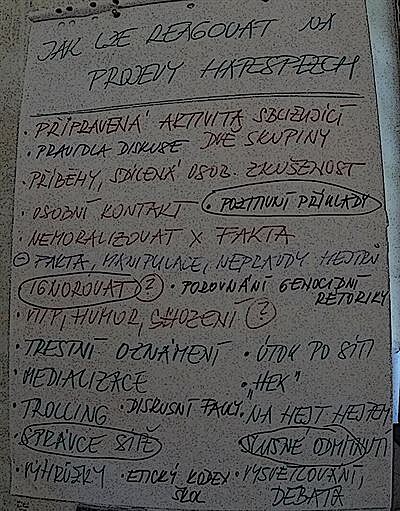 JAK LZE REAGOVAT NA
PROJEVY HATESPEECH
• PŘIPRAVENÁ AKTIVITA SBLIŽUJÍCÍ
DVĚ SKUPINY
• PRAVIDLA DISKUSE
• PŘÍBĚHY, SDÍLENÁ OSOB. ZKUŠENOST
• OSOBNÍ KONTAKT • POZITIVNÍ PŘÍKLADY
• NEMORALIZOVAT X FAKTA
FAKTA, MANIPULACE, NEPRAVDY HEJTRŮ
IGNOROVAT ? • POROVNÁNÍ GENOCIDNÍ
RÉTORIKY
• VTIP, HUMOR, SHOZENÍ ?
• TRESTNÍ OZNÁMENÍ • ÚTOK PO SÍTI
• MEDIALIZACE • "HEK"
• TROLLING • DISKUSNÍ FAULY • NA HEJT HEJTEM
• SPRÁVCE SÍTĚ SLUŠNÉ ODMÍTNUTÍ
• VÝHRŮŽKY • ETICKÝ KODEX • VYSVĚTLOVÁNÍ,
ŠKOL DEBATA